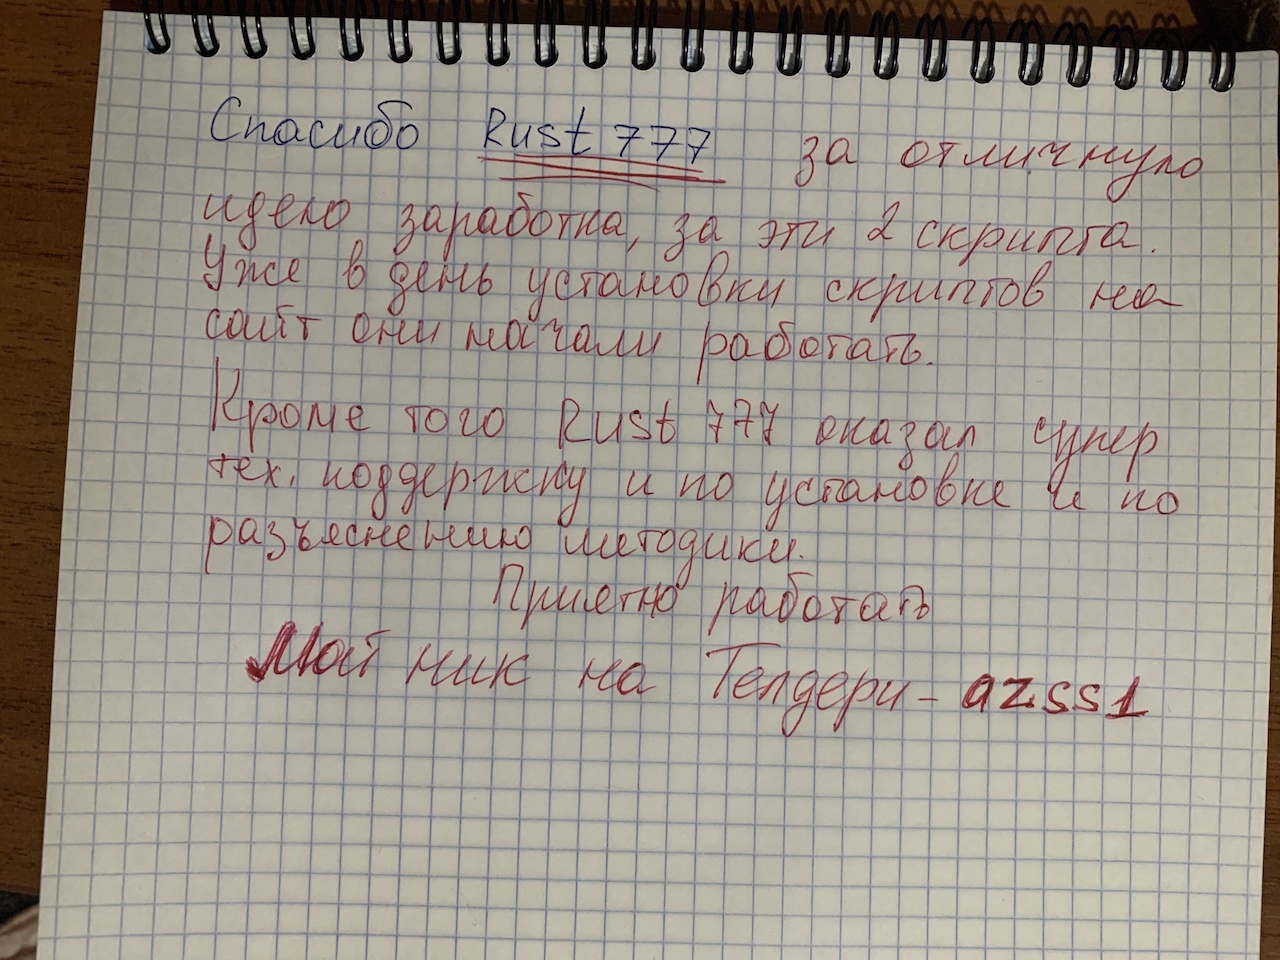 Спасибо Rust 777 за отличную
идею заработка, за эти 2 скрипта.
Уже в день установки скриптов на
сайт они начали работать.
Кроме того Rust 777 оказал супер
тех. поддержку и по установке и по
разъяснению методики.
Приятно работать
Мой ник на Телдери - azss1